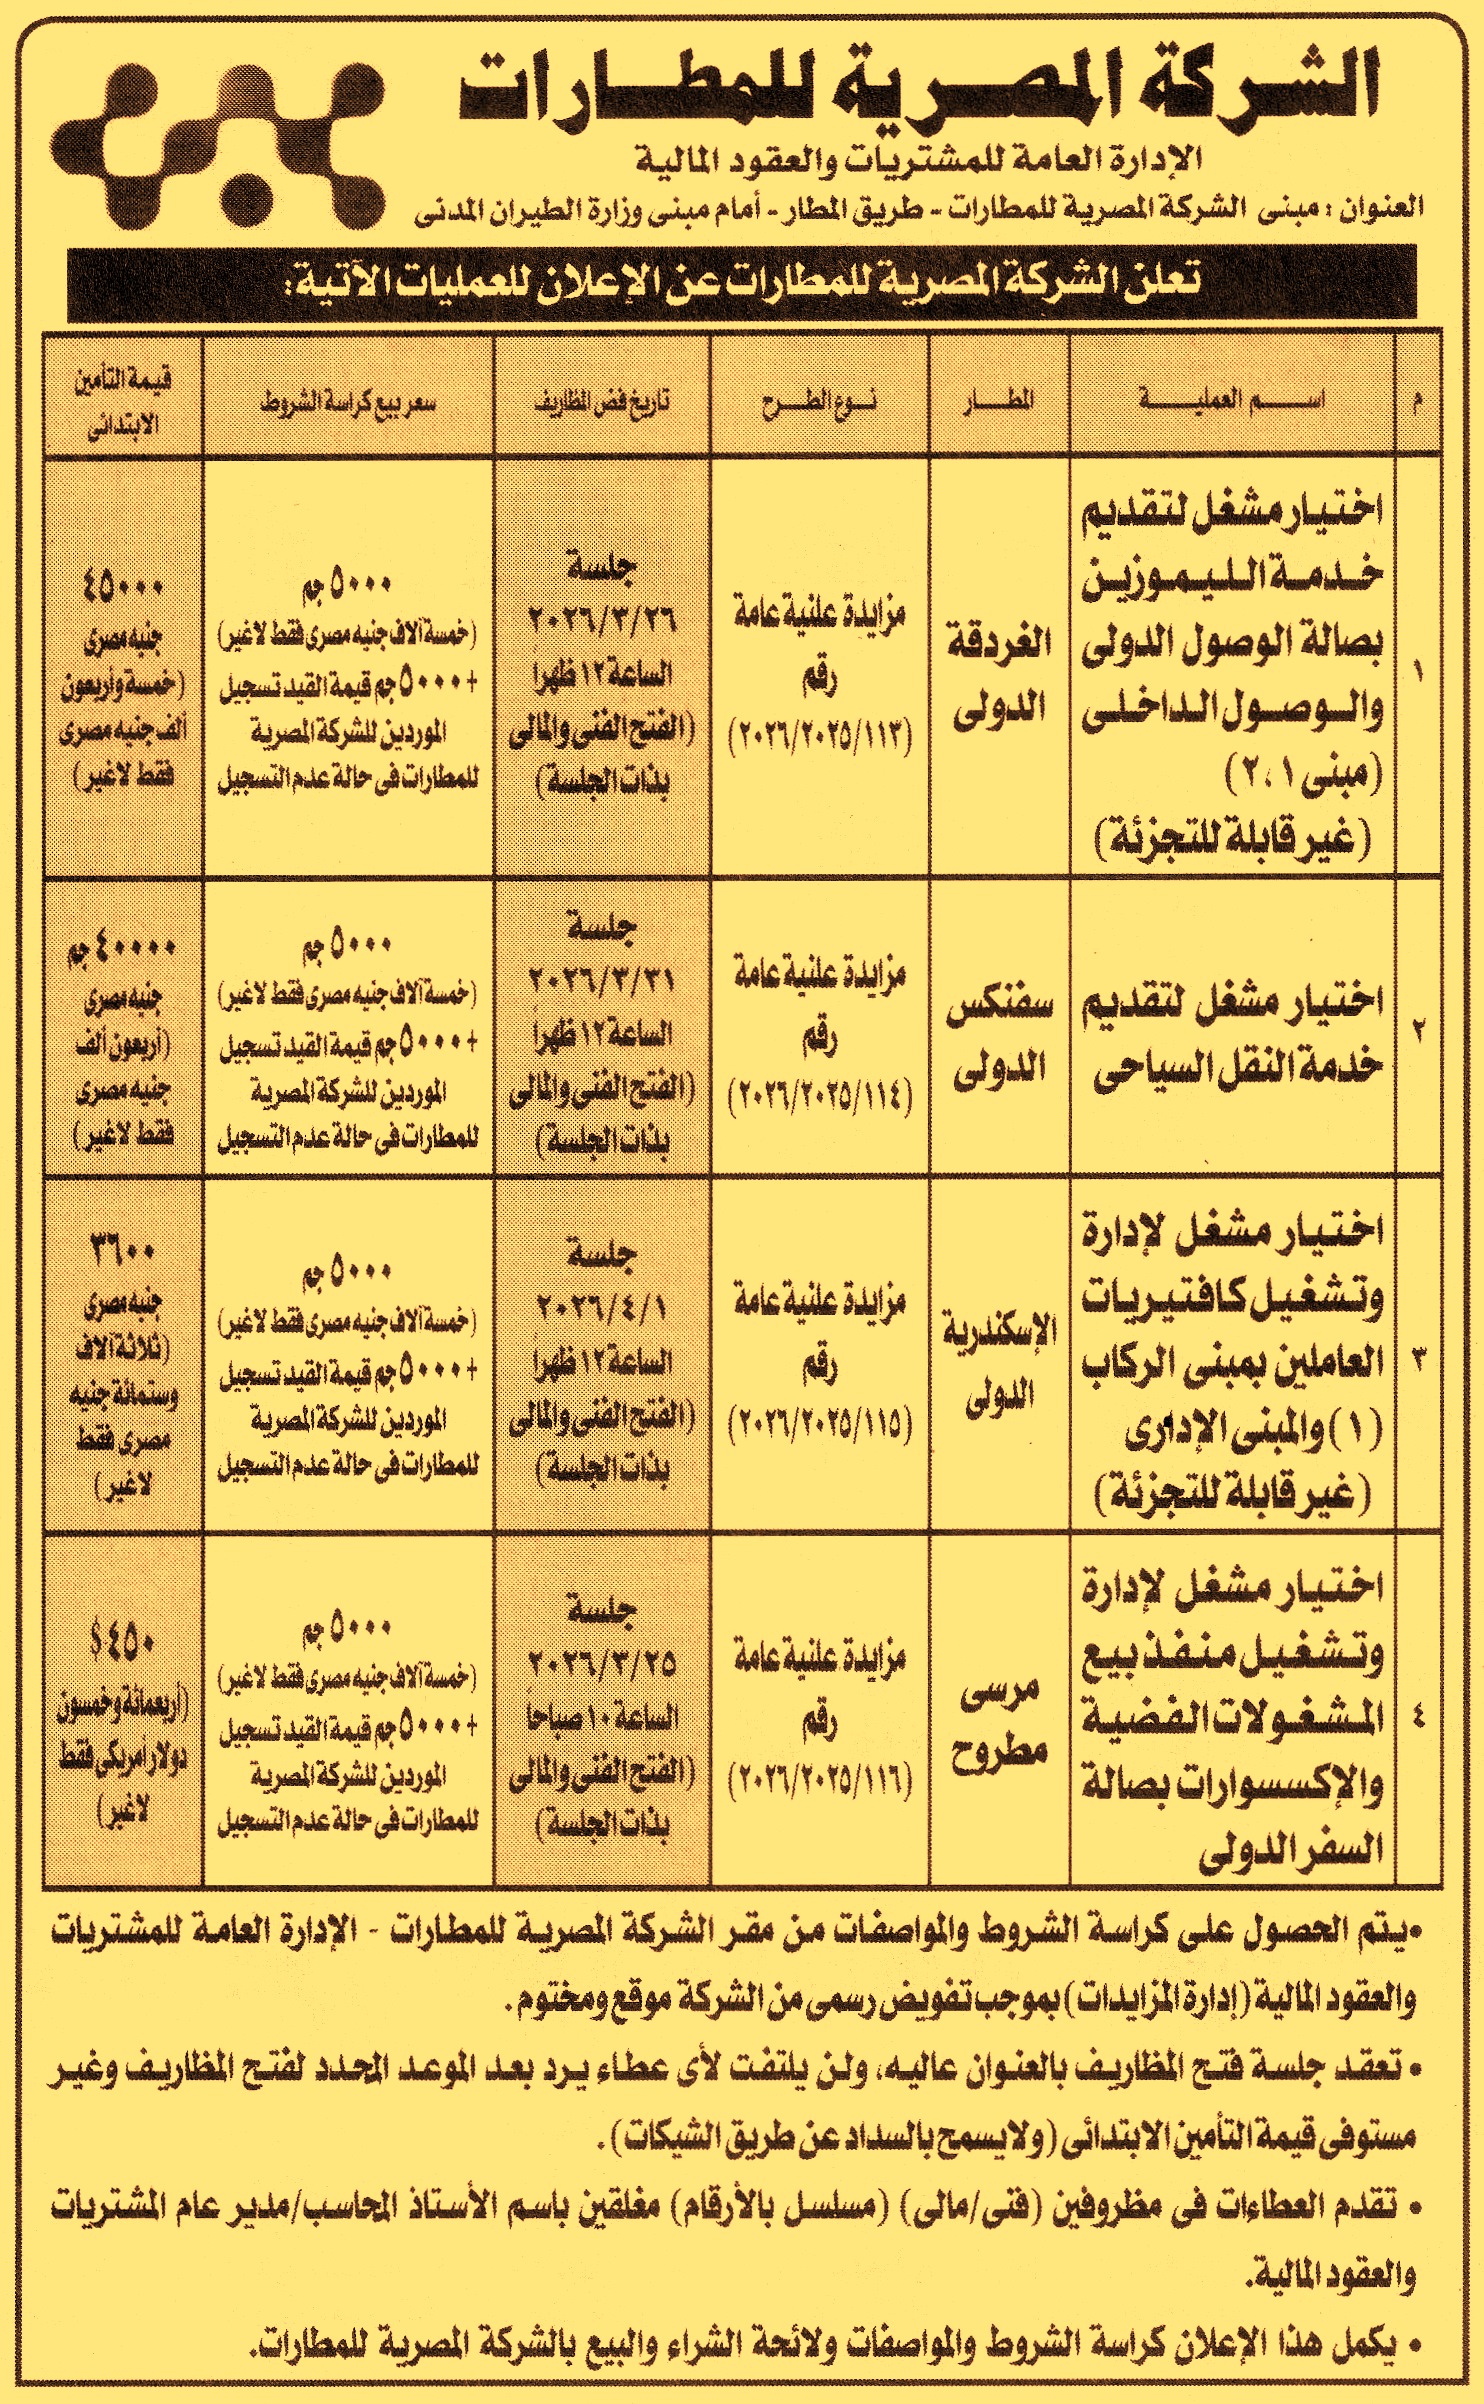 الشركة المصرية للمطارات
الإدارة العامة للمشتريات والعقود المالية
العنوان : مبنى الشركة المصرية للمطارات - طريق المطار - أمام مبنى وزارة الطيران المدنى
تعلن الشركة المصرية للمطارات عن الإعلان للعمليات الآتية:
م
اسم العملية
المطار
نوع الطرح
تاريخ فض المظاريف
سعر بيع كراسة الشروط
قيمة التأمين
الابتدائى
١
اختيار مشغل لتقديم
خدمة الليموزين
بصالة الوصول الدولى
والوصول الداخلى
(مبنى ١ ، ٢)
(غير قابلة للتجزئة)
الغردقة
الدولى
مزايدة علنية عامة
رقم
(٢٠٢٦/٢٠٢٥/١١٣)
جلسة
٢٠٢٦/٣/٢٦
الساعة ١٢ ظهراً
(الفتح الفنى والمالى
بذات الجلسة)
٥٠٠٠ جم
(خمسة آلاف جنيه مصرى فقط لاغير)
+ ٥٠٠٠ جم قيمة القيد تسجيل
الموردين للشركة المصرية
للمطارات فى حالة عدم التسجيل
٤٥٠٠٠
جنيه مصرى
(خمسة وأربعون
ألف جنيه مصرى
فقط لاغير)
٢
اختيار مشغل لتقديم
خدمة النقل السياحى
سفنكس
الدولى
مزايدة علنية عامة
رقم
(٢٠٢٦/٢٠٢٥/١١٤)
جلسة
٢٠٢٦/٣/٣١
الساعة ١٢ ظهراً
(الفتح الفنى والمالى
بذات الجلسة)
٥٠٠٠ جم
(خمسة آلاف جنيه مصرى فقط لاغير)
+ ٥٠٠٠ جم قيمة القيد تسجيل
الموردين للشركة المصرية
للمطارات فى حالة عدم التسجيل
٤٠٠٠٠ جم
جنيه مصرى
(أربعون ألف
جنيه مصرى
فقط لاغير)
٣
اختيار مشغل لإدارة
وتشغيل كافتيريات
العاملين بمبنى الركاب
(١) والمبنى الإدارى
(غير قابلة للتجزئة)
الإسكندرية
الدولى
مزايدة علنية عامة
رقم
(٢٠٢٦/٢٠٢٥/١١٥)
جلسة
٢٠٢٦/٤/١
الساعة ١٢ ظهراً
(الفتح الفنى والمالى
بذات الجلسة)
٥٠٠٠ جم
(خمسة آلاف جنيه مصرى فقط لاغير)
+ ٥٠٠٠ جم قيمة القيد تسجيل
الموردين للشركة المصرية
للمطارات فى حالة عدم التسجيل
٣٦٠٠
جنيه مصرى
(ثلاثة آلاف
وستمائة جنيه
مصرى فقط
لاغير)
٤
اختيار مشغل لإدارة
وتشغيل منفذ بيع
المشغولات الفضية
والإكسسوارات بصالة
السفر الدولى
مرسى
مطروح
مزايدة علنية عامة
رقم
(٢٠٢٦/٢٠٢٥/١١٦)
جلسة
٢٠٢٦/٣/٢٥
الساعة ١٠ صباحاً
(الفتح الفنى والمالى
بذات الجلسة)
٥٠٠٠ جم
(خمسة آلاف جنيه مصرى فقط لاغير)
+ ٥٠٠٠ جم قيمة القيد تسجيل
الموردين للشركة المصرية
للمطارات فى حالة عدم التسجيل
٤٥٠ $
(أربعمائة وخمسون
دولار أمريكى فقط
لاغير)
• يتم الحصول على كراسة الشروط والمواصفات من مقر الشركة المصرية للمطارات - الإدارة العامة للمشتريات
والعقود المالية (إدارة المزايدات) بموجب تفويض رسمى من الشركة موقع ومختوم.
• تعقد جلسة فتح المظاريف بالعنوان عاليه، ولن يلتفت لأى عطاء يرد بعد الموعد المحدد لفتح المظاريف وغير
مستوفى قيمة التأمين الابتدائى (ولا يسمح بالسداد عن طريق الشيكات).
• تقدم العطاءات فى مظروفين (فنى/مالى) (مسلسل بالأرقام) مغلقين باسم الأستاذ المحاسب/مدير عام المشتريات
والعقود المالية.
• يكمل هذا الإعلان كراسة الشروط والمواصفات ولائحة الشراء والبيع بالشركة المصرية للمطارات.